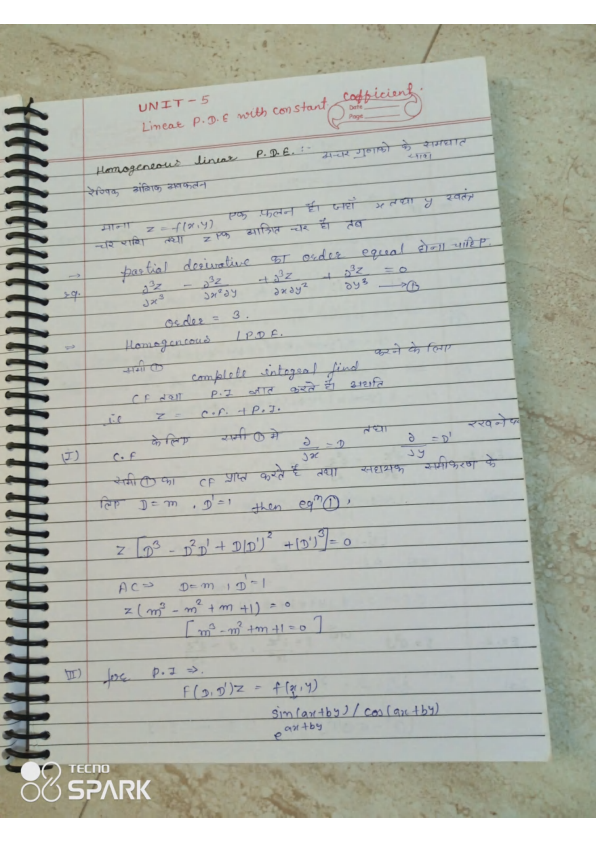 UNIT-5
Linear P.D.E with constant cofficient.
Date
Page
Homogeneous linear P.D.E. :- अचर गुणांको के समघात
रैखिक आंशिक अवकलन
माना z = f(x,y) एक फलन है। जहाँ x तथा y स्वतंत्र
चर राशि तथा z एक आश्रित चर है। तब
→ partial derivative का order equal होना चाहिए.
eg. ∂³z/∂x³ - ∂³z/∂x²∂y + ∂³z/∂x∂y² + ∂³z/∂y³ = 0 → ①
order = 3.
⇒ Homogeneous LPDE.
समी① complete integral find करने के लिए
CF तथा P.I ज्ञात करते हैं अर्थात
i.e z = C.F. + P.I.
(I) C.F के लिए समी① मे ∂/∂x = D तथा ∂/∂y = D' रखने पर
समी① का CF प्राप्त करते है तथा सहायक समीकरण के
लिए D = m , D' = 1 then eqⁿ①,
z [D³ - D²D' + D(D')² + (D')³] = 0
AC ⇒ D = m , D' = 1
z (m³ - m² + m + 1) = 0
[m³ - m² + m + 1 = 0]
(II) for P.I ⇒.
F(D,D')z = f(x,y)
sin(ax+by) / cos(ax+by)
e^(ax+by)
TECNO
SPARK